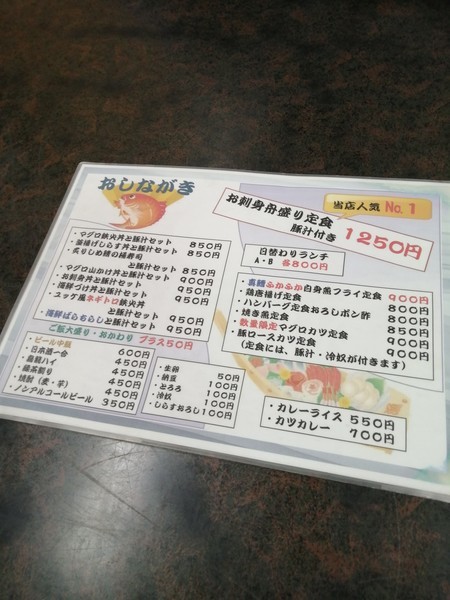 おしながき
・マグロ鉄火丼と豚汁セット 850円
・釜揚げしらす丼と豚汁セット 850円
・炙りしめ鯖の棒寿司
と豚汁セット 850円
・マグロ山かけ丼と豚汁セット 900円
・お刺身丼と豚汁セット 950円
・海鮮づけ丼と豚汁セット 950円
・ユッケ風ネギトロ鉄火丼
と豚汁セット 950円
・海鮮ばらちらしと豚汁セット 950円
ご飯大盛り・おかわり プラス50円
・ビール中瓶 600円
・日本酒一合 450円
・緑茶割り 450円
・焼酎(麦・芋) 450円
・ノンアルコールビール 350円
・生卵 50円
・納豆 100円
・とろろ 100円
・冷奴 100円
・しらすおろし 100円
当店人気 No.1
お刺身舟盛り定食
豚汁付き 1250円
日替わりランチ
A・B 各800円
・真鯛ふかふか白身魚フライ定食 900円
・鶏唐揚げ定食 800円
・ハンバーグ定食おろしポン酢 850円
・焼き魚定食 900円
・数量限定マグロカツ定食 900円
・豚ロースカツ定食 900円
(定食には、豚汁・冷奴が付きます)
・カレーライス 550円
・カツカレー 700円